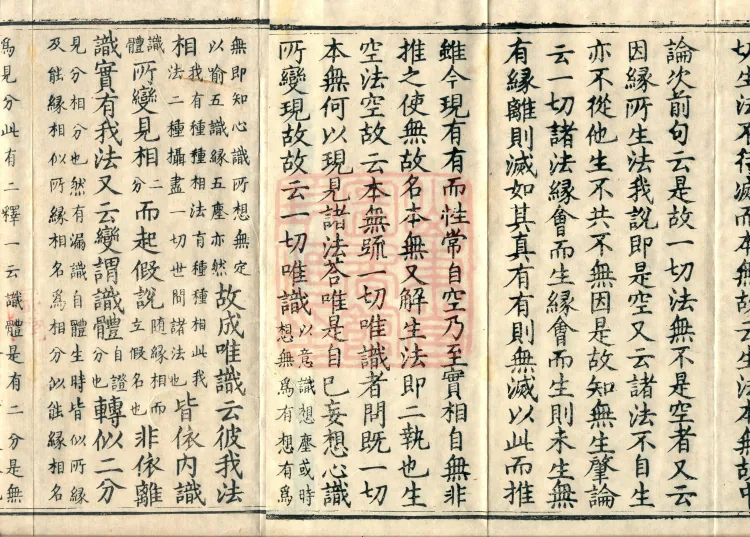 論次前句云是故一切法無不是空者又云
因緣所生法我說即是空又云諸法不自生
亦不從他生不共不無因是故知無生肇論
云一切諸法緣會而生緣會而生則未生無
有緣離則滅如其真有有則無滅以此而推
雖今現有有而性常自空乃至實相自無非
推之使無故名本無又解生法即二執也生
空法空故云本無䟽一切唯識者問既一切
本無何以現見諸法荅唯是自已妄想心識
所變現故故云一切唯識以意識想塵或時想無爲有想有爲
無即知心識所想無定以喻五識緣五塵亦然故成唯識云彼我法
相我有種種相法有種種相此我法二種攝盡一切世間諸法也皆依內識
識體所變見相二分而起假說隨緣相而立假名也非依離
識實有我法又云變謂識體自證分也轉似二分
見分相分也然有漏識自體生時皆似所緣
及能緣相似所緣相名爲相分似能緣相名
爲見分此有二釋一云識體是有二分是無